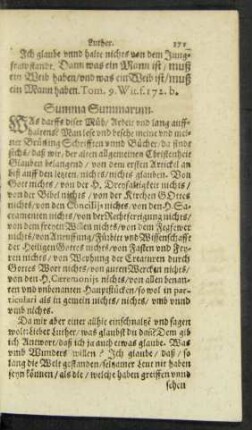 Luther. 171
Jch glaube vnnd halte nichts von dem Jung-
frawstande. Dann was ein Mann ist / muß
ein Weib haben / vnd was ein Weib ist / muß
ein Mann haben. Tom. 9. Wit. f. 172. b.
Summa Summarum.
WAs darffs diser Müh / Arbeit vnd lang auff-
haltens? Man lese vnd besehe meine vnd mei-
ner Brüder Schrifften vnnd Bücher / da findt
sichs / daß wir / der alten allgemeinen Christenheit
Glauben belangend / von dem ersten Articul an
biß auff den letzten / nichts / nichts glauben. Von
Gott nichts / von der H. Dreyfaltigkeit nichts /
von der Bibel nichts / von der Kirchen GOttes
nichts / von den Conciliis nichts / von den H. Sa-
cramenten nichts / von der Rechtfertigung nichts /
von dem freyen Willen nichts / von dem Fegfewer
nichts / von Anruffung / Fürbitt vnd Wissenschafft
der Heiligen Gottes nichts / von Fasten vnd Fey-
ren nichts / von Weyhung der Creaturen durch
Gottes Wort nichts / von guten Wercken nichts /
von den H. Caeremoniis nichts / von allen benan-
ten vnd vnbenanten Hauptstücken / so wol in par-
ticulari als in gemein nichts / nichts / vnd vnnd
nichts.
Da mir aber einer alhie einschnaltzē vnd sagen
wolt: Lieber Luther / was glaubst du dañ? Dem gib
ich Antwort / daß ich ja auch etwas glaube. Was
vmb Wunders willen? Jch glaube / daß / so
lang die Welt gestanden / seltzamer Leut nit haben
seyn können / als die / welche haben greiffen vnnd
sehen